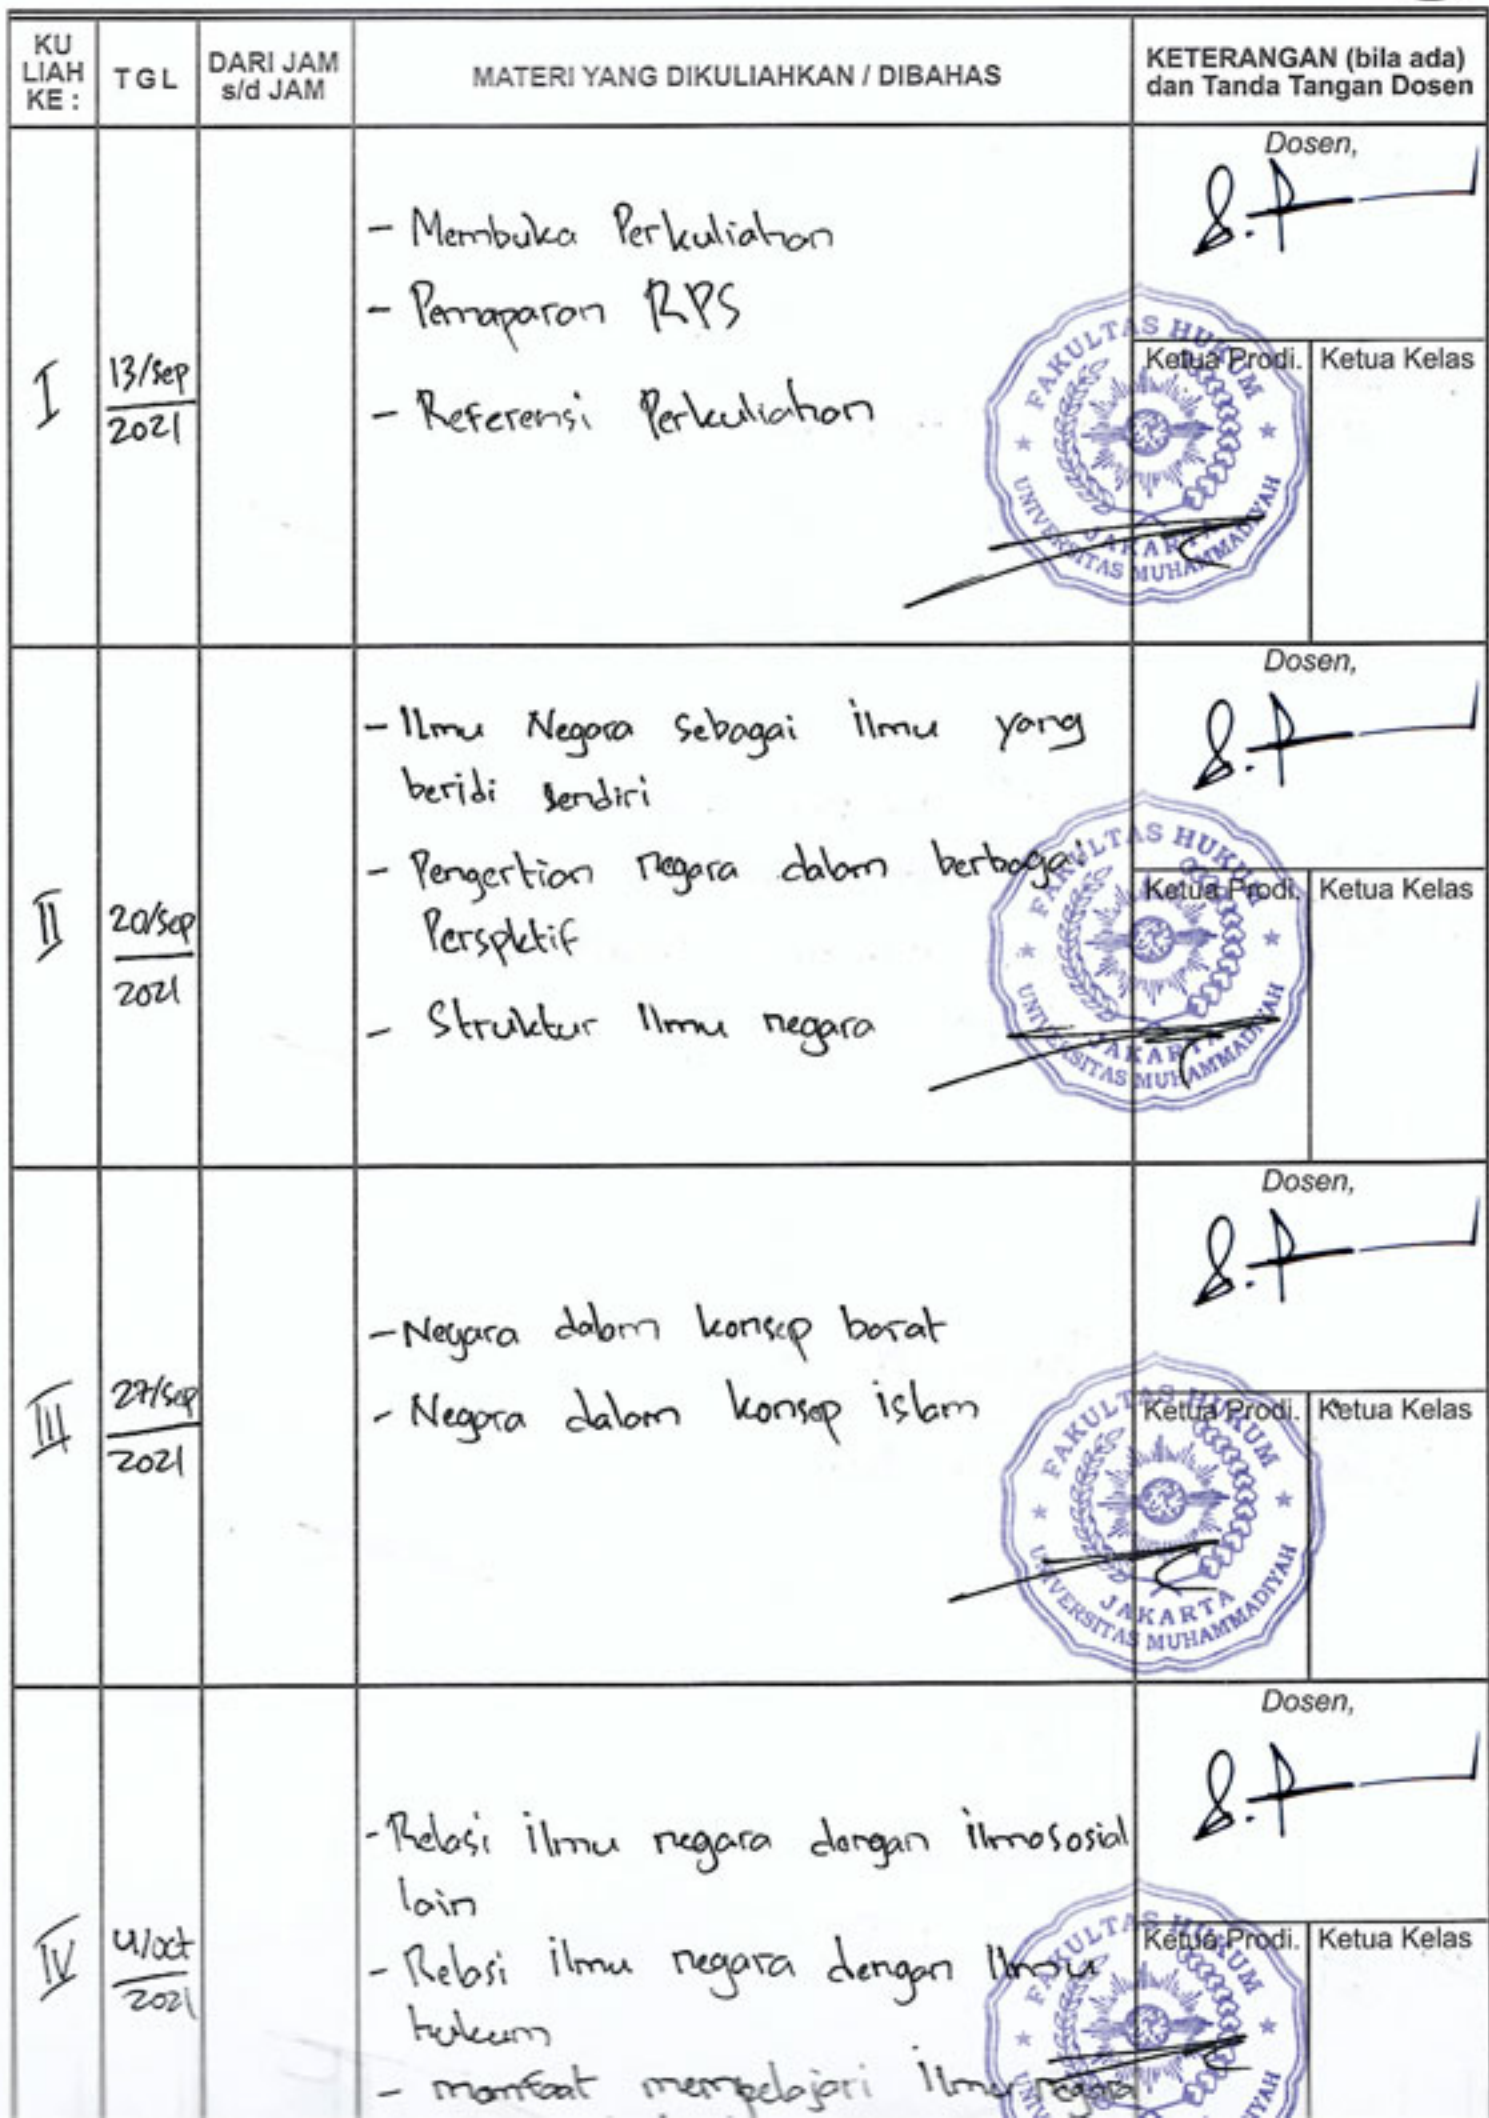 KU LIAH KE :
TGL
DARI JAM s/d JAM
MATERI YANG DIKULIAHKAN / DIBAHAS
KETERANGAN (bila ada) dan Tanda Tangan Dosen
I
13/sep
2021
- Membuka Perkuliahan
- Pemaparan RPS
- Referensi Perkuliahan
Dosen,
Ketua Prodi.
Ketua Kelas
FAKULTAS HUKUM
JAKARTA
UNIVERSITAS MUHAMMADIYAH
II
20/sep
2021
- Ilmu Negara sebagai ilmu yang
beridi sendiri
- Pengertian negara dalam berbagai
Perspktif
- Struktur Ilmu negara
Dosen,
Ketua Prodi.
Ketua Kelas
FAKULTAS HUKUM
JAKARTA
UNIVERSITAS MUHAMMADIYAH
III
27/sep
2021
- Negara dalam konsep barat
- Negara dalam konsep islam
Dosen,
Ketua Prodi.
Ketua Kelas
FAKULTAS HUKUM
JAKARTA
UNIVERSITAS MUHAMMADIYAH
IV
4/oct
2021
- Relasi ilmu negara dengan ilmu sosial
lain
- Relasi ilmu negara dengan Ilmu
hukum
- manfaat mempelajari Ilmu negara
Dosen,
Ketua Prodi.
Ketua Kelas
FAKULTAS HUKUM